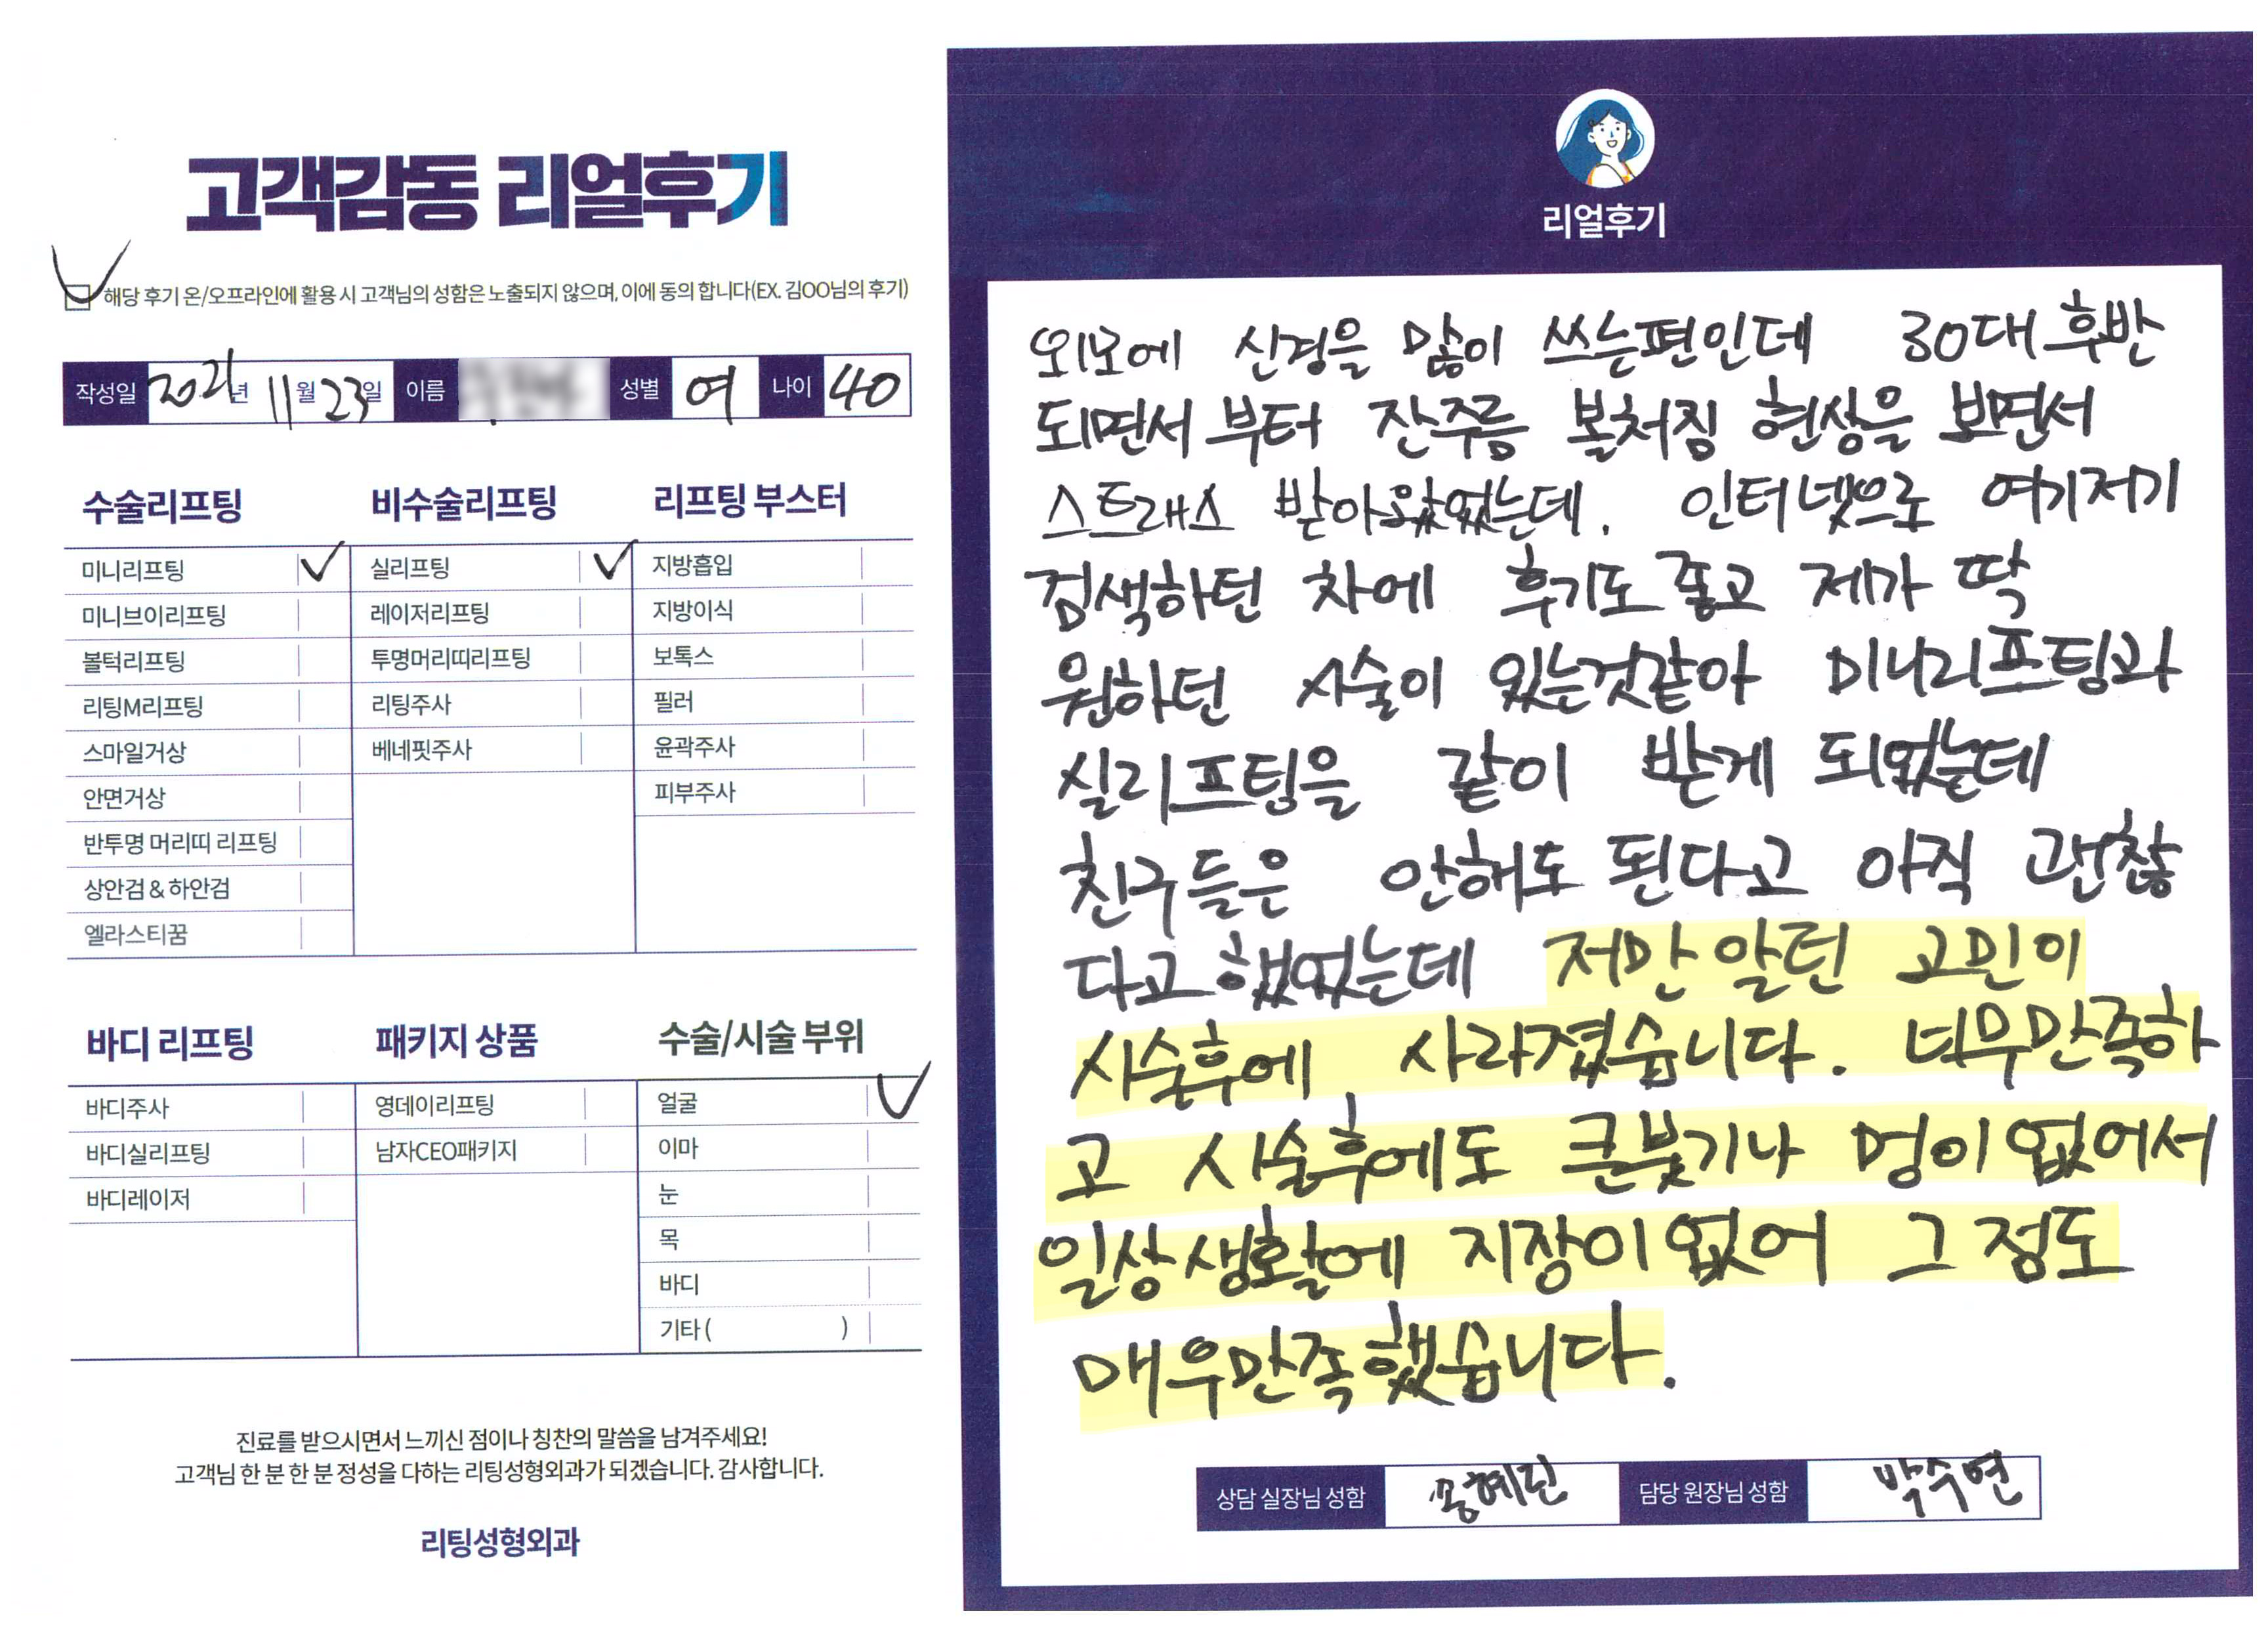 고객감동 리얼후기
해당 후기 온/오프라인에 활용 시 고객님의 성함은 노출되지 않으며, 이에 동의 합니다(EX. 김OO님의 후기)
작성일 2021년 11월 23일 이름 성별 여 나이 40
수술리프팅
미니리프팅
미니브이리프팅
볼턱리프팅
리팅M리프팅
스마일거상
안면거상
반투명 머리띠 리프팅
상안검 & 하안검
엘라스티꿈
비수술리프팅
실리프팅
레이저리프팅
투명머리띠리프팅
리팅주사
베네핏주사
리프팅 부스터
지방흡입
지방이식
보톡스
필러
윤곽주사
피부주사
바디 리프팅
바디주사
바디실리프팅
바디레이저
패키지 상품
영데이리프팅
남자CEO패키지
수술/시술 부위
얼굴
이마
눈
목
바디
기타 ( )
진료를 받으시면서 느끼신 점이나 칭찬의 말씀을 남겨주세요!
고객님 한 분 한 분 정성을 다하는 리팅성형외과가 되겠습니다. 감사합니다.
리팅성형외과
리얼후기
외모에 신경을 많이 쓰는편인데 30대 후반
되면서 부터 잔주름 볼처짐 현상을 보면서
스트래스 받아왔었는데. 인터넷으로 여기저기
검색하던 차에 후기도 좋고 제가 딱
원하던 시술이 있는것같아 미니리프팅과
실리프팅을 같이 받게 되었는데
친구들은 안해도 된다고 아직 괜찮
다고 했었는데 저만 알던 고민이
시술후에 사라졌습니다. 너무만족하
고 시술후에도 큰붓기나 멍이 없어서
일상생활에 지장이 없어 그 정도
매우만족했습니다.
상담 실장님 성함 송혜진 담당 원장님 성함 박수연